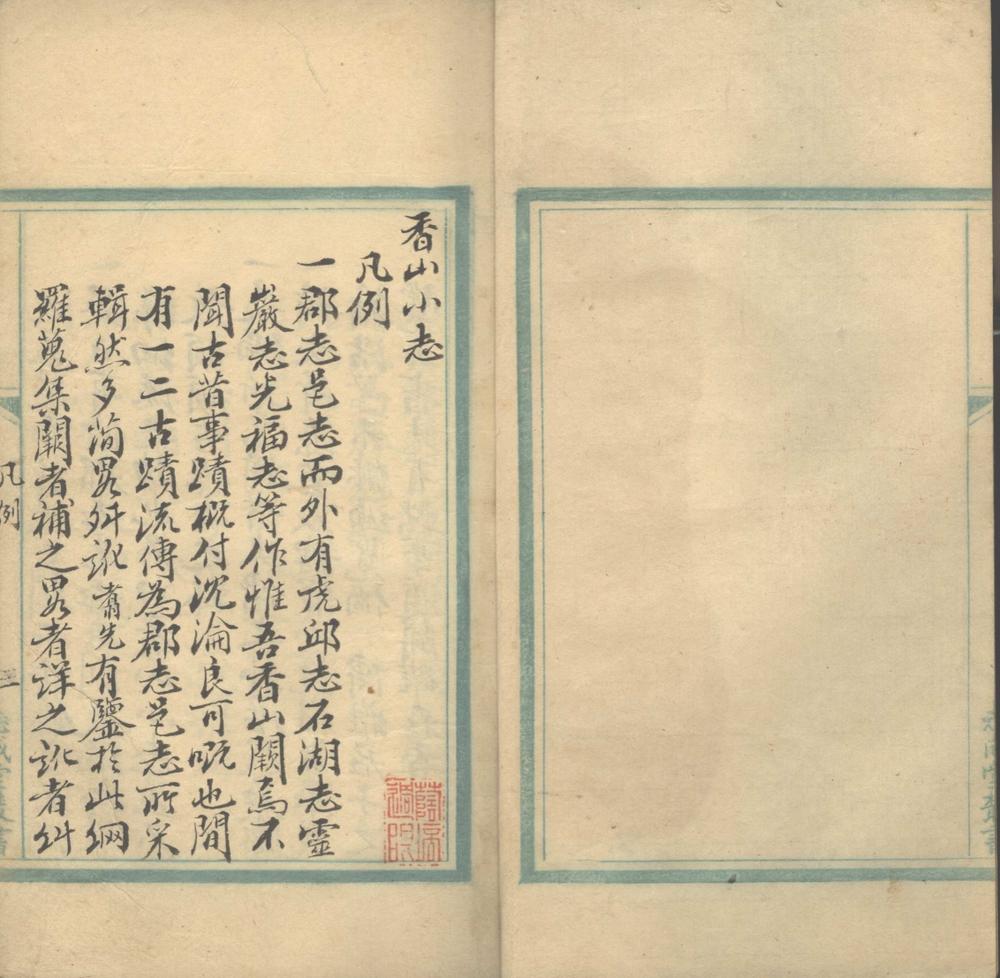 香山小志
凡例
一郡志邑志而外有虎邱志石湖志靈
巖志光福志等作惟吾香山闕焉不
聞古昔事蹟概付沉淪良可慨也間
有一二古蹟流傳為郡志邑志所采
輯然多簡畧舛訛翥先有鑒於此網
羅蒐集闕者補之畧者詳之訛者糾
凡例